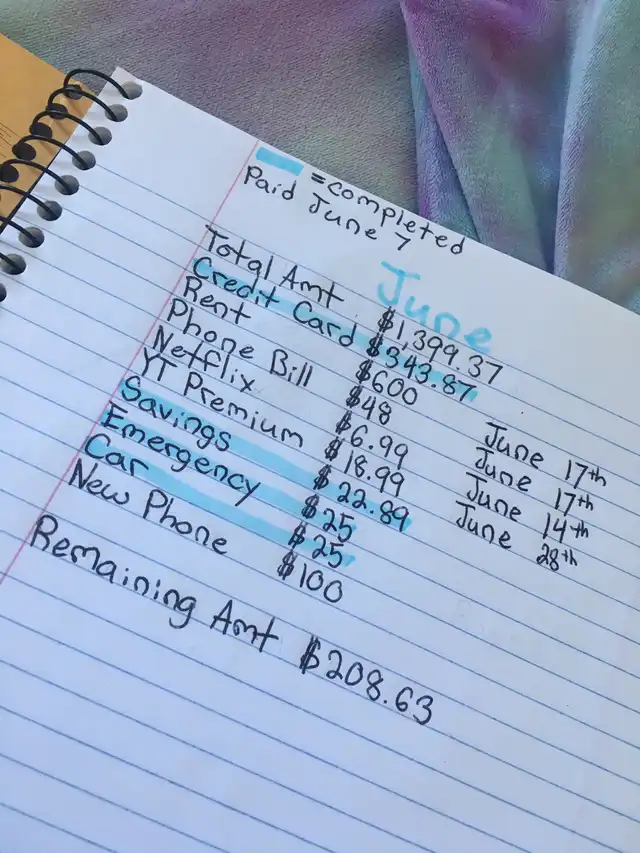 = completed
Paid June 7
June
Total Amt $1,399.37
Credit Card $343.87
Rent $600 June 17th
Phone Bill $48 June 17th
Netflix $6.99 June 14th
YT Premium $18.99 June 28th
Savings $22.89
Emergency $25
Car $25
New Phone $100
Remaining Amt $208.63